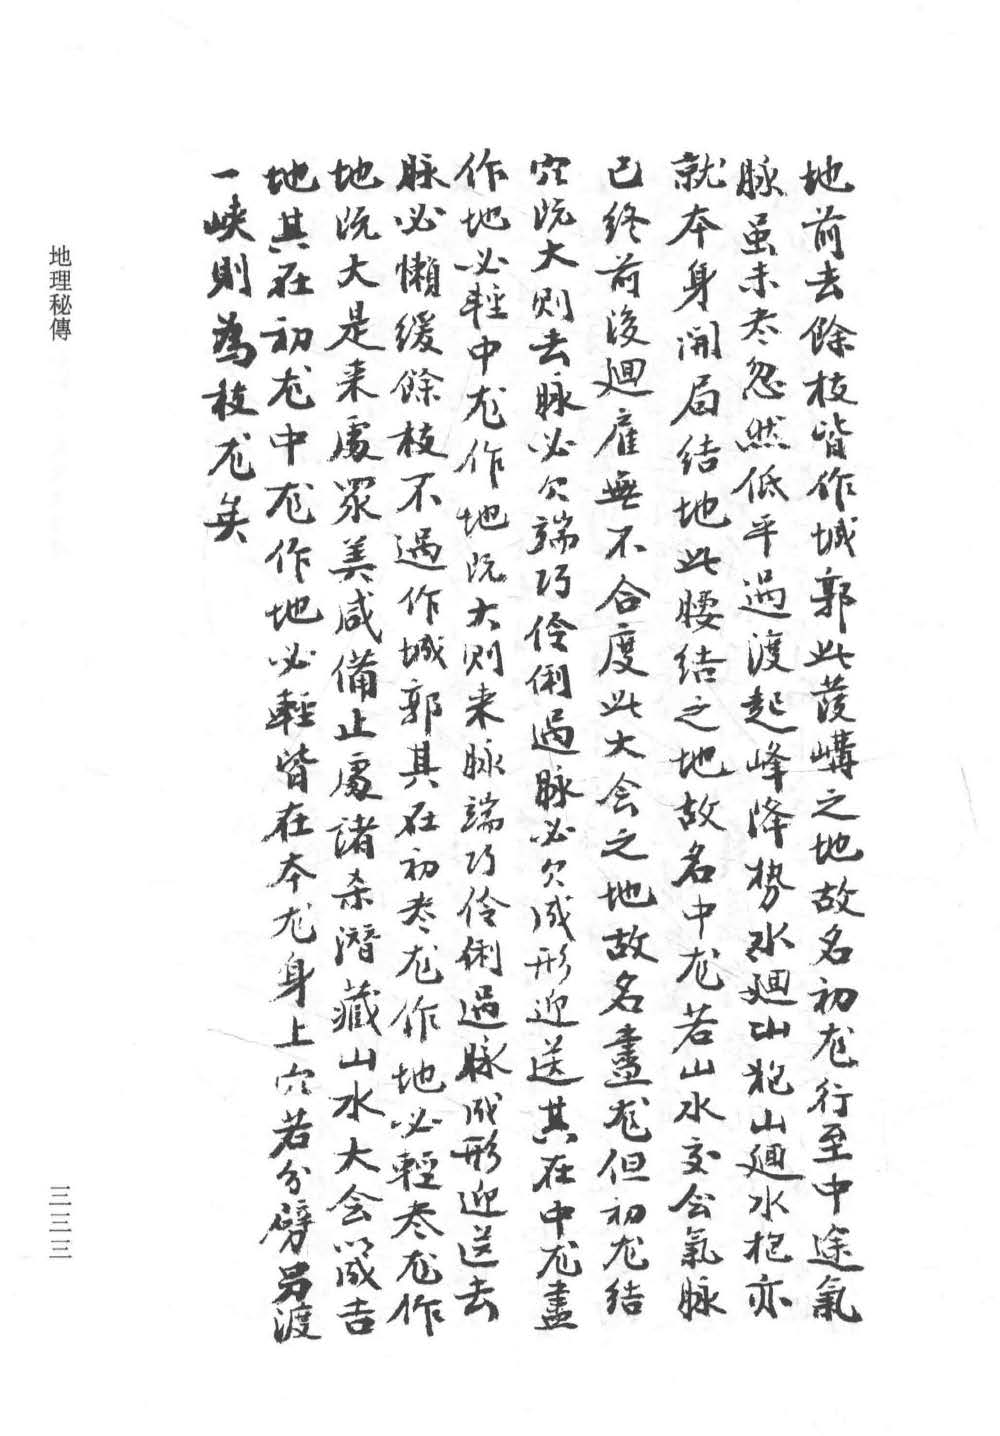 地前去餘枝皆作城郭此護嶹之地故名初尨行至中途氣
脉虽未尽忽然低平過渡起峰降势水廻山抱山廻水抱亦
就本身開局结地此腰结之地故名中尨若山水交会氣脉
已终前後廻雇無不合度此大会之地故名盡尨但初尨结
穴既大则去脉必欠端巧伶俐過脉必欠成形迎送其在中尨盡
作地必輕中尨作地既大则来脉端巧伶俐過脉成形迎送去
脉必懒缓餘枝不過作城郭其在初尽尨作地必輕尽尨作
地既大是来處众美咸備止處諸杀潛藏山水大会以成吉
地其在初尨中尨作地必輕皆在本尨身上穴若分劈另渡
一峡则為枝尨矣
地理秘傳
三三三